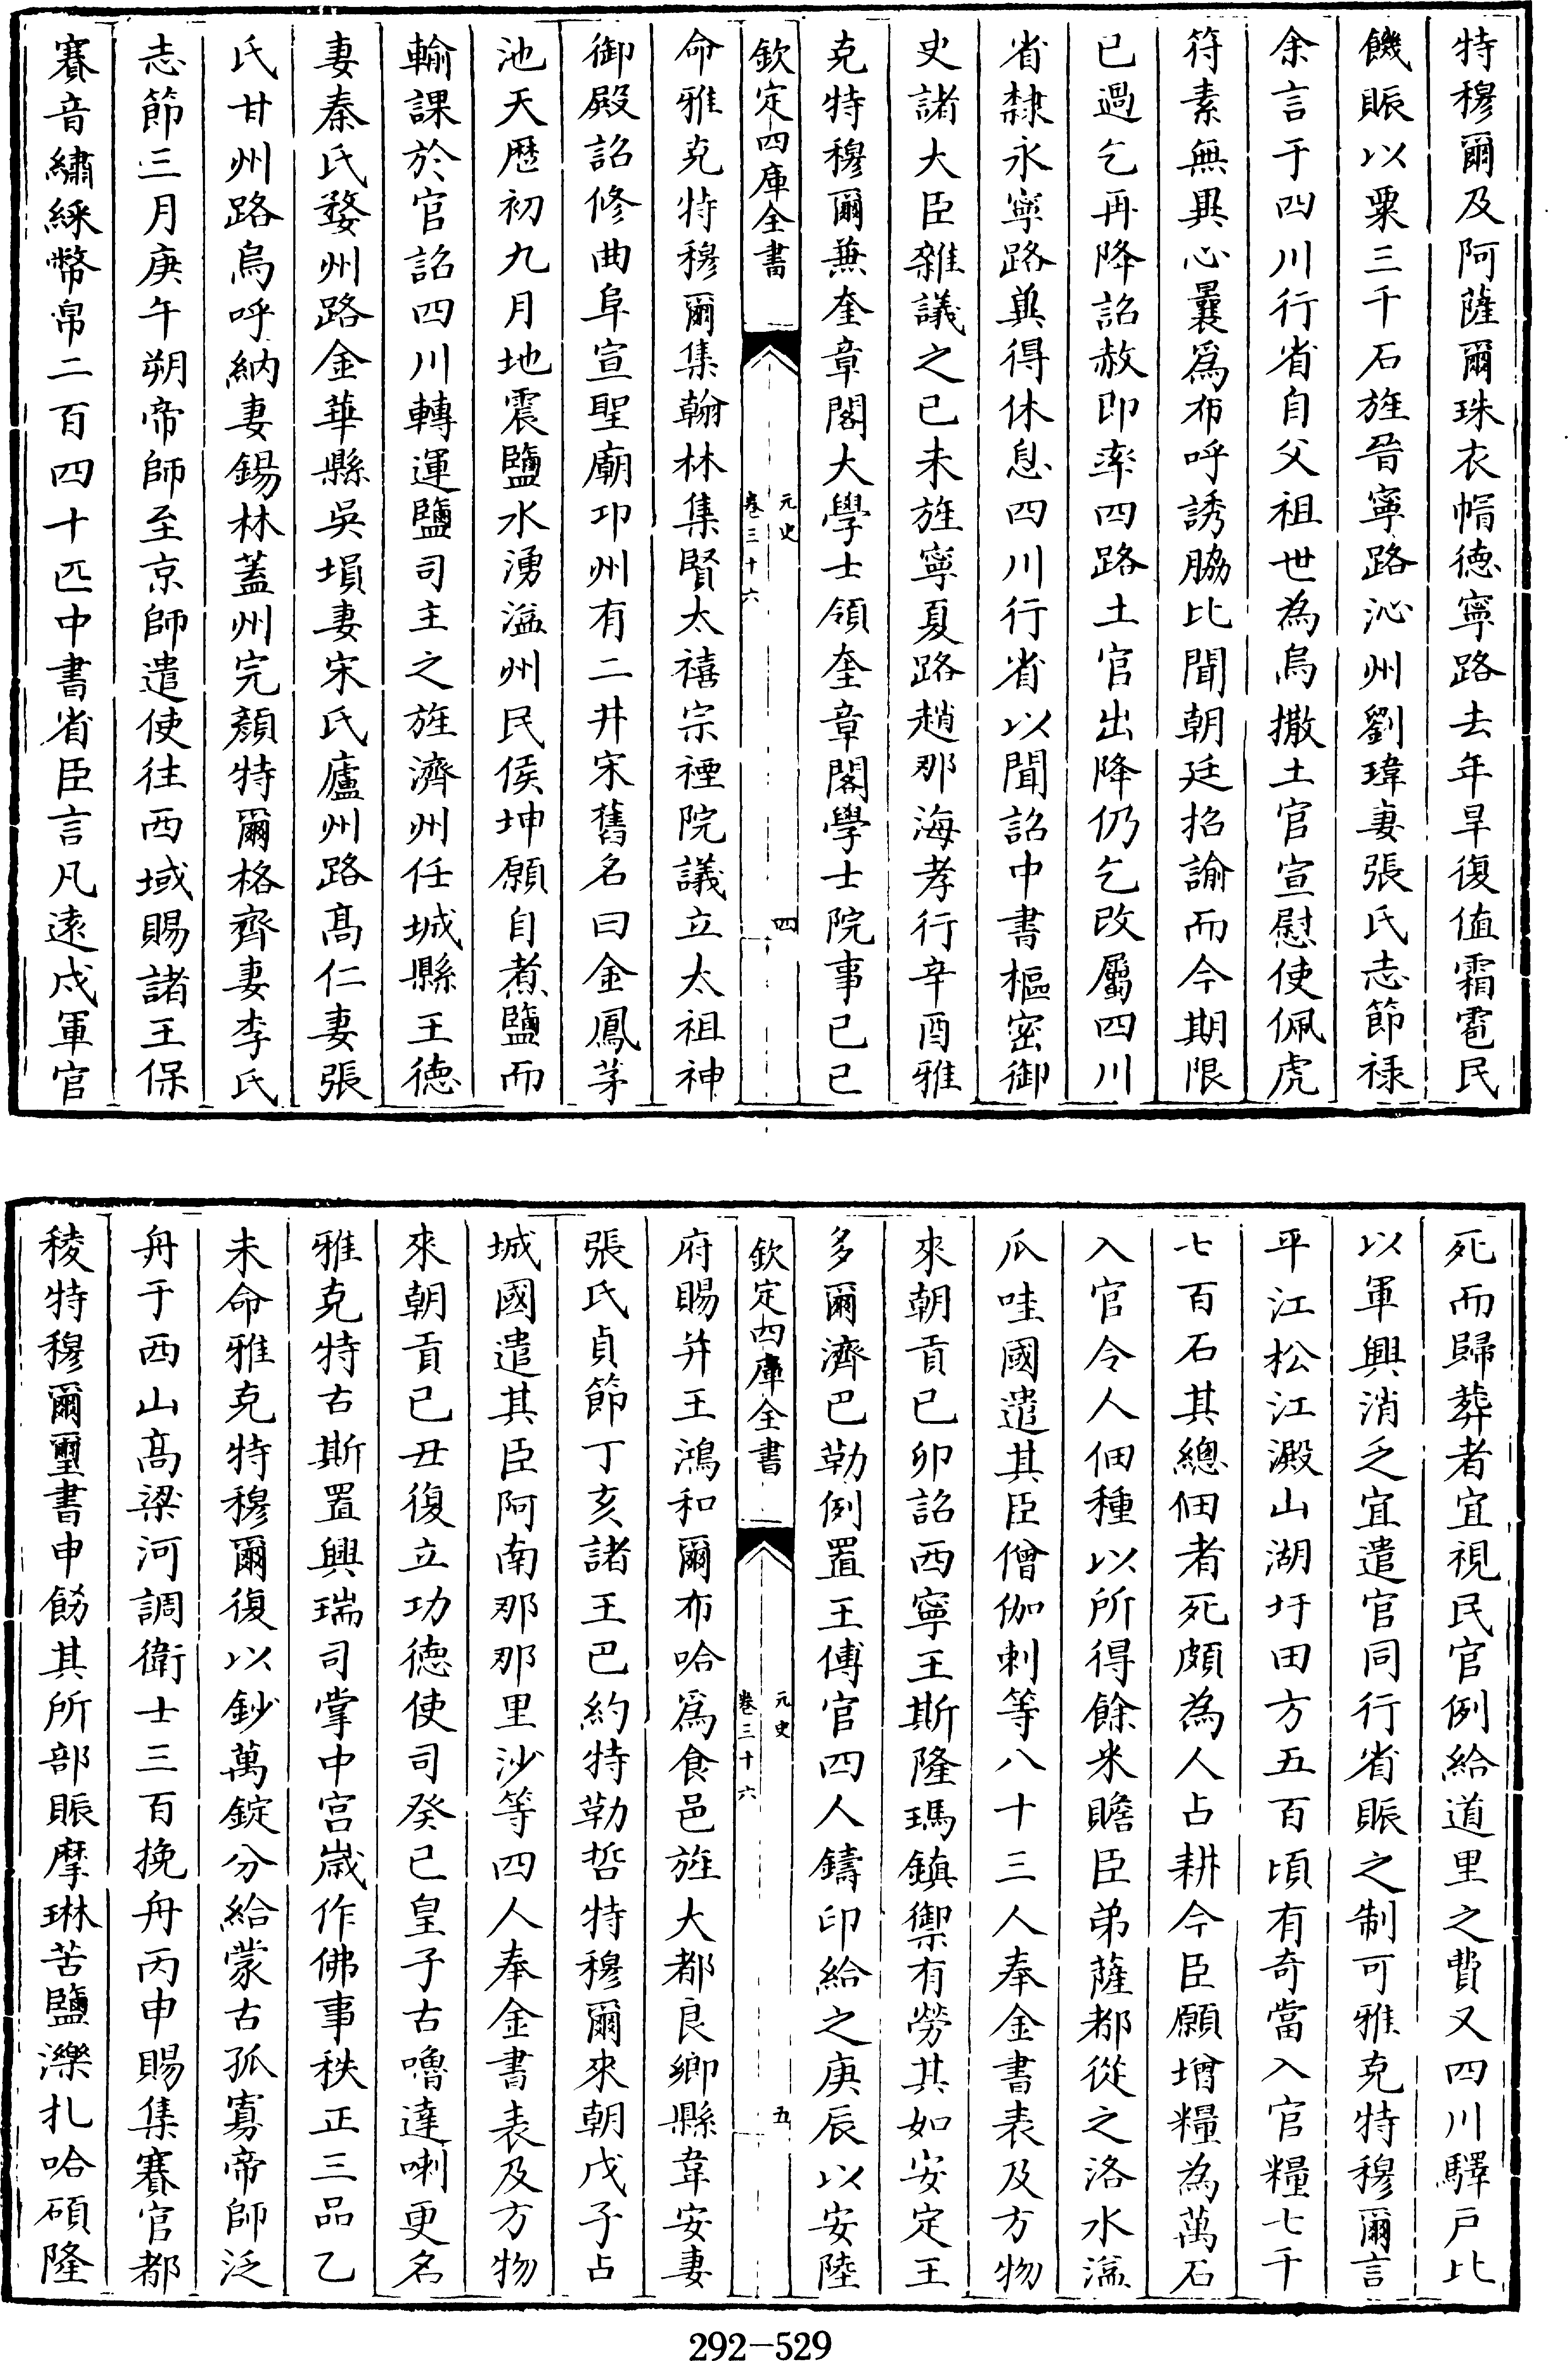 特穆爾及阿薩爾珠衣㡌徳寧路去年旱復值霜雹民
饑賑以粟三千石旌晉寧路沁州劉瑋妻張氏志節禄
余言于四川行省自父祖世為烏撒土官宣慰使佩虎
符素無異心曩爲布呼誘脇比聞朝廷招諭而今期限
已過乞再降詔赦即率四路土官出降仍乞改屬四川
省隸永寧路冀得休息四川行省以聞詔中書樞密御
史諸大臣雜議之己未旌寧夏路趙那海孝行辛酉雅
克特穆爾兼奎章閣大學士領奎章閣學士院事己巳
欽定四庫全書
元史
卷三十六
四
命雅克特穆爾集翰林集賢太禧宗禋院議立太祖神
御殿詔修曲阜宣聖廟卭州有二井宋舊名曰金鳳茅
池天厯初九月地震鹽水湧溢州民侯坤願自煮鹽而
輸課於官詔四川轉運鹽司主之旌濟州任城縣王徳
妻秦氏婺州路金華縣吳塤妻宋氏廬州路髙仁妻張
氏甘州路烏呼納妻錫林蓋州完顏特爾格齊妻李氏
志節三月庚午朔帝師至京師遣使往西域賜諸王保
賽音繡綵幣帛二百四十匹中書省臣言凡逺戍軍官
死而歸葬者宜視民官例給道里之費又四川驛戸比
以軍興消乏宜遣官同行省賑之制可雅克特穆爾言
平江松江澱山湖圩田方五百頃有奇當入官糧七千
七百石其總佃者死頗為人占耕今臣願增糧為萬石
入官令人佃種以所得餘米贍臣弟薩都從之洛水溢
瓜哇國遣其臣僧伽剌等八十三人奉金書表及方物
來朝貢己卯詔西寧王斯隆瑪鎮禦有勞其如安定王
多爾濟巴勒例置王傅官四人鑄印給之庚辰以安陸
欽定四庫全書
元史
卷三十六
五
府賜并王鴻和爾布哈爲食邑旌大都良鄉縣韋安妻
張氏貞節丁亥諸王巴約特勒哲特穆爾來朝戊子占
城國遣其臣阿南那那里沙等四人奉金書表及方物
來朝貢己丑復立功徳使司癸巳皇子古嚕達喇更名
雅克特古斯置興瑞司掌中宫歲作佛事秩正三品乙
未命雅克特穆爾復以鈔萬錠分給蒙古孤寡帝師泛
舟于西山髙梁河調衛士三百挽舟丙申賜集賽官都
稜特穆爾璽書申飭其所部賑摩琳苦鹽濼扎哈碩隆
292-529